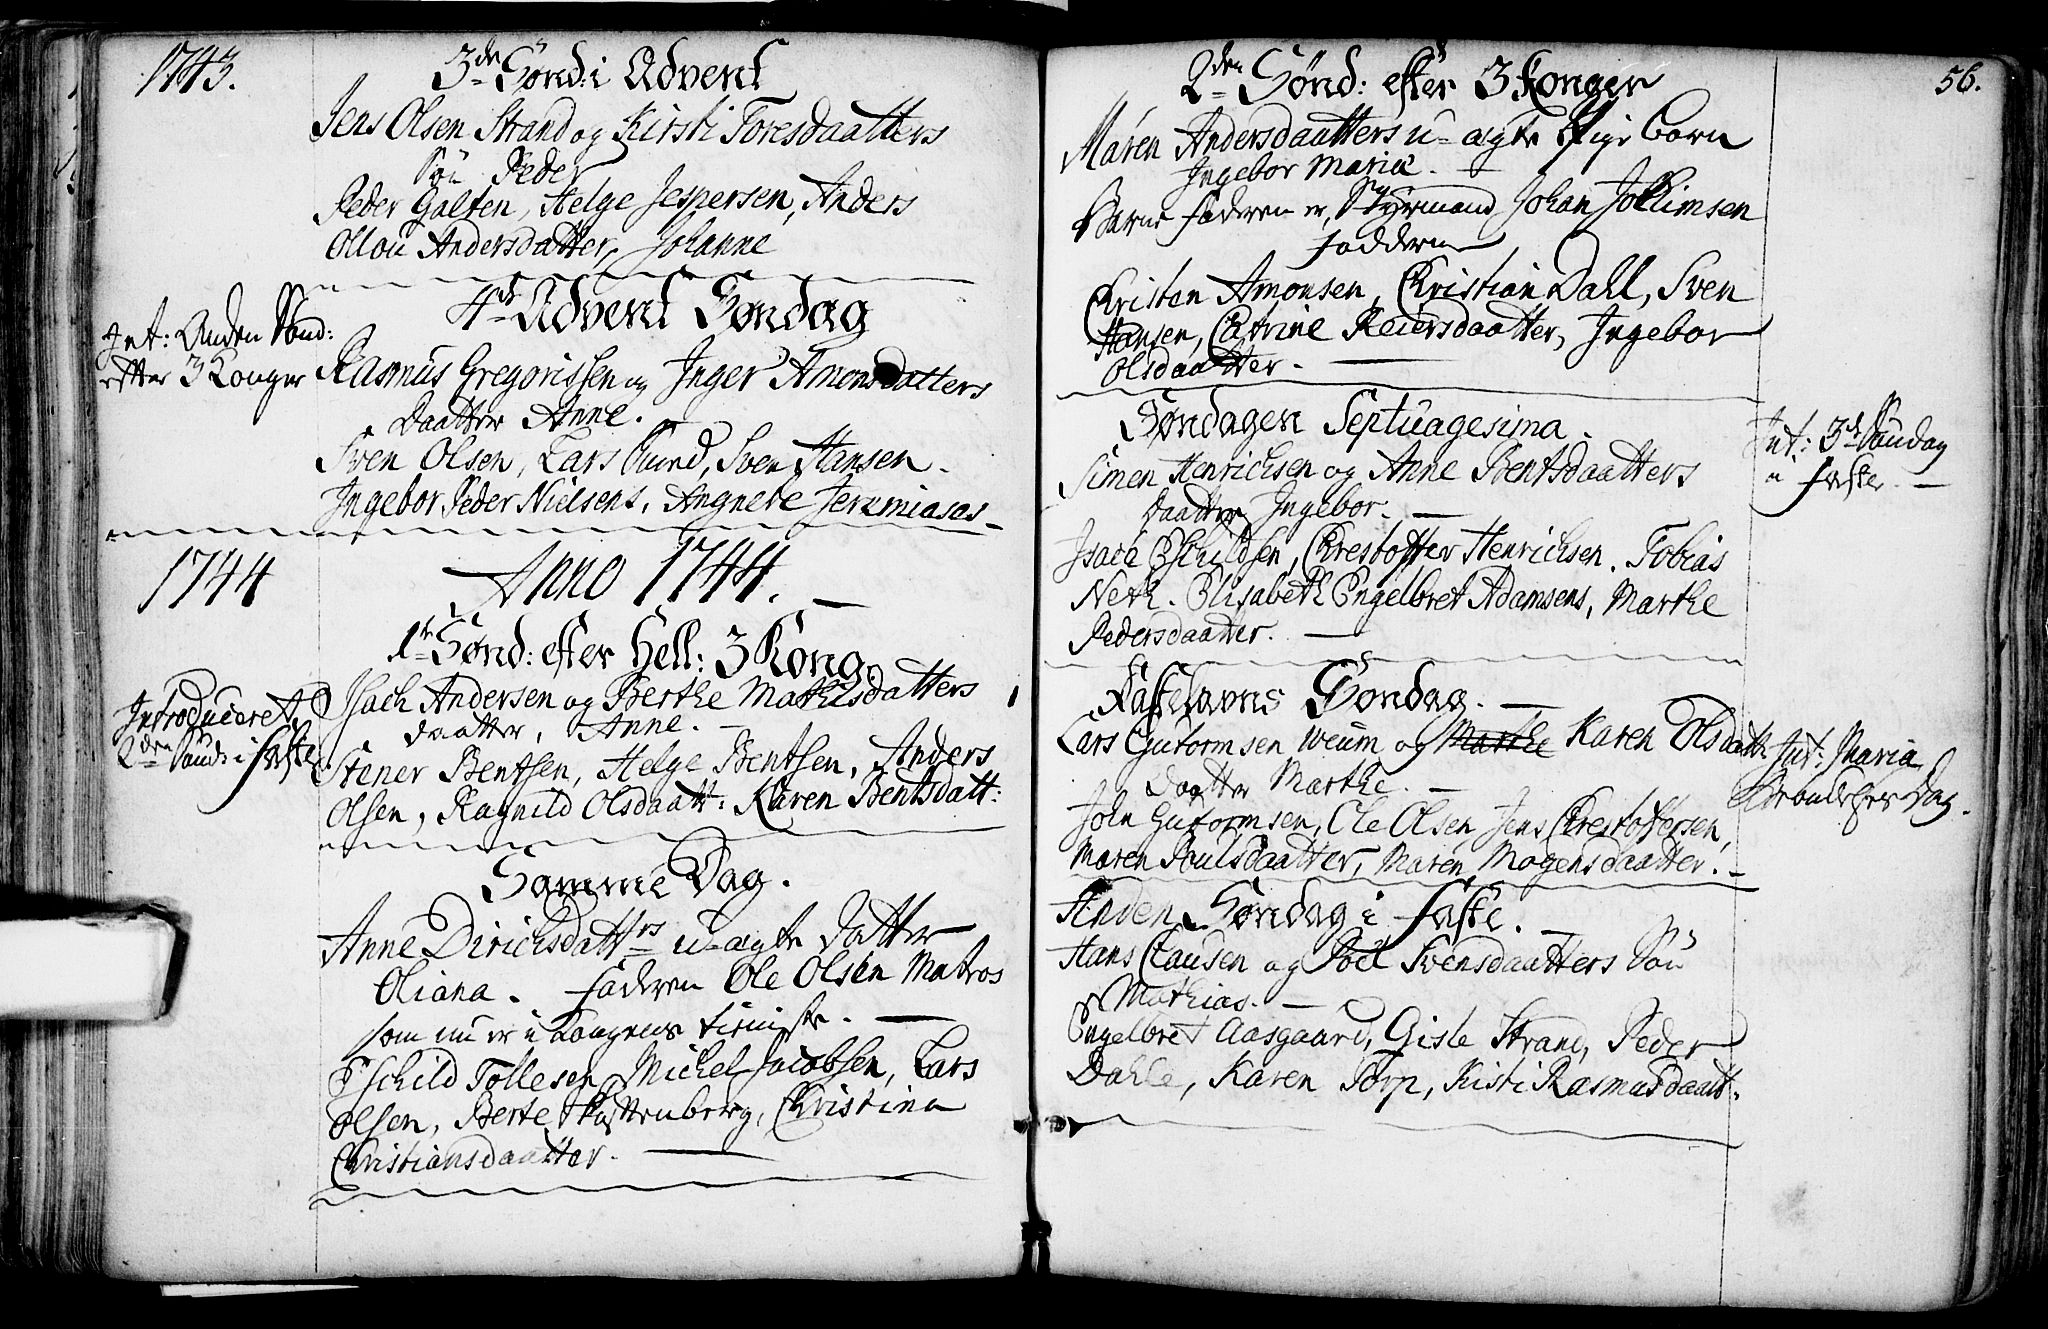 1743.
3de Sønd: i Advent
Jens Olsen Strand og Kirsti Toresdaatters
Søn Peder
Peder Galten, Helge Jespersen, Anders
Ollou Andersdatter, Johanne
4de Advent Søndag
Int: Anden Sønd:
efter 3 Konger
Rasmus Gregorissen og Inger Amonsdatters
Daatter Anne.
Sven Olsen, Lars Sund, Sven Hansen.
Ingebor Peder Nielsens, Angnete Jeremiases
1744
Anno 1744.
1te Sønd: efter Hell: 3 Kong.
Introduceret
2den Sønd: i Faste
Isach Andersen og Berthe Mathisdatters
Daatter, Anne.
Stener Bentsen, Helge Bentsen, Anders
Olsen, Ragnild Olsdaatt: Karen Bentsdatt:
Samme Dag.
Anne Dirichsdattrs u-ægte Datter
Oliana. Faderen Ole Olsen Matros
som nu er i Kongens tieniste.
Eschild Tollesen, Michel Jacobsen, Lars
Olsen, Berte Skottenberg, Christina
Christiansdaatter.
56.
2den Sønd: efter 3 Konger
Maren Andersdaatters u-ægte Pige Barn
Ingebor Maria.
Barne Faderen er, Styrmand Johan Jokimsen
Fadderne
Christen Amonsen, Christian Dahl, Sven
Hansen, Catrine Reiersdaatter, Ingebor
Olsdaatter.
Søndagen Septuagesima.
Int: 3de Søndag
i Faste.
Simen Henrichsen og Anne Bentsdaatters
Daatter Ingebor.
Isach Eschildsen, Christoffer Henrichsen. Tobias
Neth. Elisabeth Engelbret Adamsens, Marthe
Pedersdaatter.
Fastelavns Søndag.
Lars Gutormsen Weum og Marthe Karen Olsdatt:
Int: Maria
Bebudelses Dag.
Daatter Marthe.
John Gutormsen, Ole Olsen, Jens Christoffersen,
Maren Poulsdaatter, Maren Mogensdaatter.
Anden Søndag i Faste.
Hans Clausen og Poel Svensdaatters Søn
Mathias.
Engelbret Aasgaard, Gisle Strand, Peder
Dahle, Karen Torp, Kisti Rasmusdaatt.